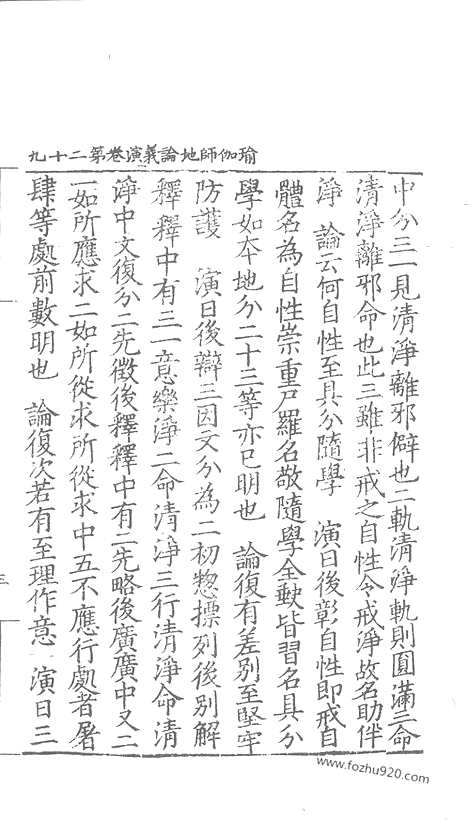 九十二第卷演義論地師伽瑜
中分三一見清淨離邪僻也二軌清淨軌則圓滿三命
清淨離邪命也此三雖非戒之自性令戒淨故名助伴
淨　論云何自性至具分隨學　演曰後彰自性即戒自
體名為自性崇重尸羅名敬隨學全缺皆習名具分
學如本地分二十三等亦已明也　論復有差別至堅牢
防護　演曰後辯三因文分為二初惣摽列後別解
釋釋中有三一意樂淨二命清淨三行清淨命清
淨中文復分二先徵後釋釋中有二先略後廣廣中又二
一如所應求二如所從求所從求中五不應行處者屠
肆等處前數明也　論復次若有至理作意　演曰三
三
www.fozhu920.com